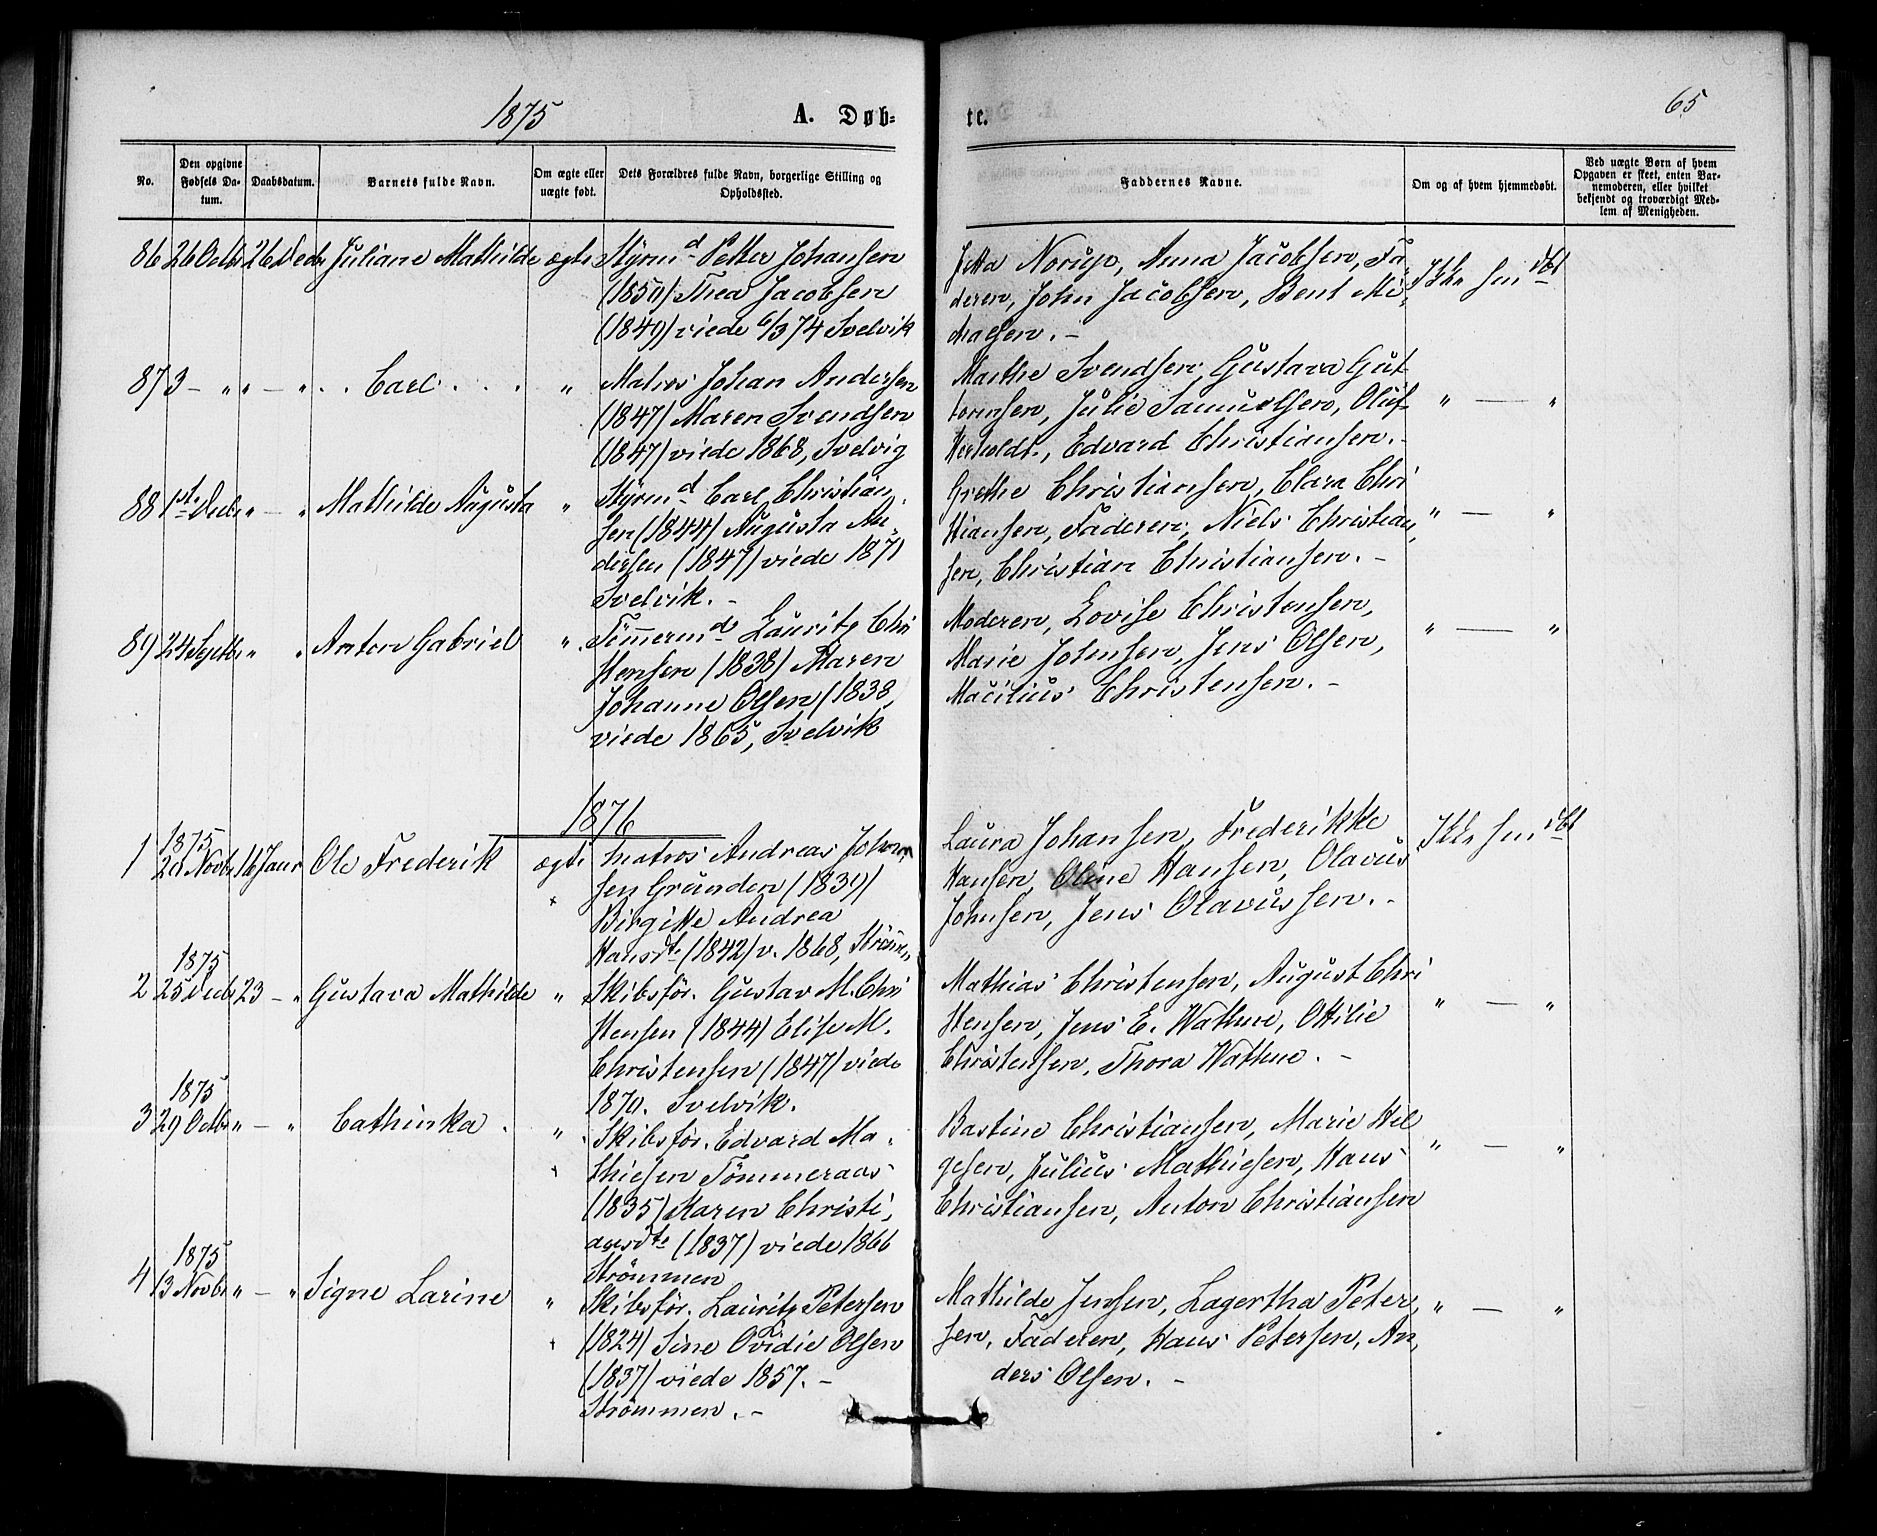 1875 A. Døb= te. 65
No. Den opgivne Fødsels Da- tum. Daabsdatum. Barnets fulde Navn. Om ægte eller uægte født. Dets Forældres fulde Navn, borgerlige Stilling og Opholdssted. Faddernes Navne. Om og af hvem hjemmedøbt. Ved uægte Børn af hvem Opgaven er skeet, enten Bar- nemoderen, eller hvilket bekjendt og troværdigt Med- lem af Menigheden.
86 26 Octbr 26 Decbr Juliane Mathilde ægte Styrmd Petter Johansen
(1850) Thea Jacobsen
(1849) viede 6/3 74 Svelvik
Jitta Norup, Anna Jacobsen, Fa-
deren, John Jacobsen, Bent Mi-
chaelsen. -
Ikke hmdbt
87 3 - " " - " Carl " Matros Johan Andersen
(1847) Maren Svendsen
(1847) viede 1868, Svelvig
Marthe Svendsen, Gustava Gut-
tormsen, Julie Samuelsen, Oluf
Hertholdt, Edvard Christiansen. -
" — "
88 1ste Decbr " - " Mathilde Augusta " Styrmd Carl Christian
sen (1844) Augusta An-
dersen (1847) viede 1871
Svelvik. -
Grethe Christiansen, Clara Chri
stiansen, Faderen, Niels Christian-
sen, Christian Christiansen. -
" — "
89 24 Septbr " " Anton Gabriel " Tømmermd Lauritz Chri
stensen (1838) Maren
Johanne Olsen (1838,
viede 1865, Svelvik
Moderen, Lovise Christensen,
Marie Johnsen, Jens Olsen,
Macilius Christensen. -
" — "
1876
1 1875 20 Novbr 16 Janr Ole Frederik ægte Matros Andreas Johan-
sen Grunden (1839)
Birgitte Andrea
Hansdtr (1842) v. 1868, Strøm-
Laura Johansen, Frederikke
Hansen, Oline Hansen, Olavus
Johnsen, Jens Olavussen. -
Ikke hmdbt
2 1875 25 Decbr 23 - " Gustava Mathilde " Skibsfør. Gustav M. Chri
stensen (1844) Elise M.
Christensen (1847) viede
1870. Svelvik.
Mathias Christensen, August Chri
stensen, Jens E. Wathne, Ottilie
Christensen, Thora Wathne. -
" — "
3 1875 29 Octbr " - " Cathinka " Skibsfør. Edvard Ma-
thiesen Tømmeraas
(1835) Karen Christi-
ansdtr (1837) viede 1866
Strømmen
Bastine Christiansen, Marie Hel
gesen, Julius Mathiesen, Hans
Christiansen, Anton Christiansen
" — "
4 1875 13 Novbr " - " Signe Larine " Skibsfør. Lauritz Petersen
(1824) Sine Ovidie Olsen
(1837) viede 1857. -
Strømmen. -
Mathilde Jensen, Lagertha Peter-
sen, Faderen, Hans Petersen, An-
ders Olsen. -
" — "